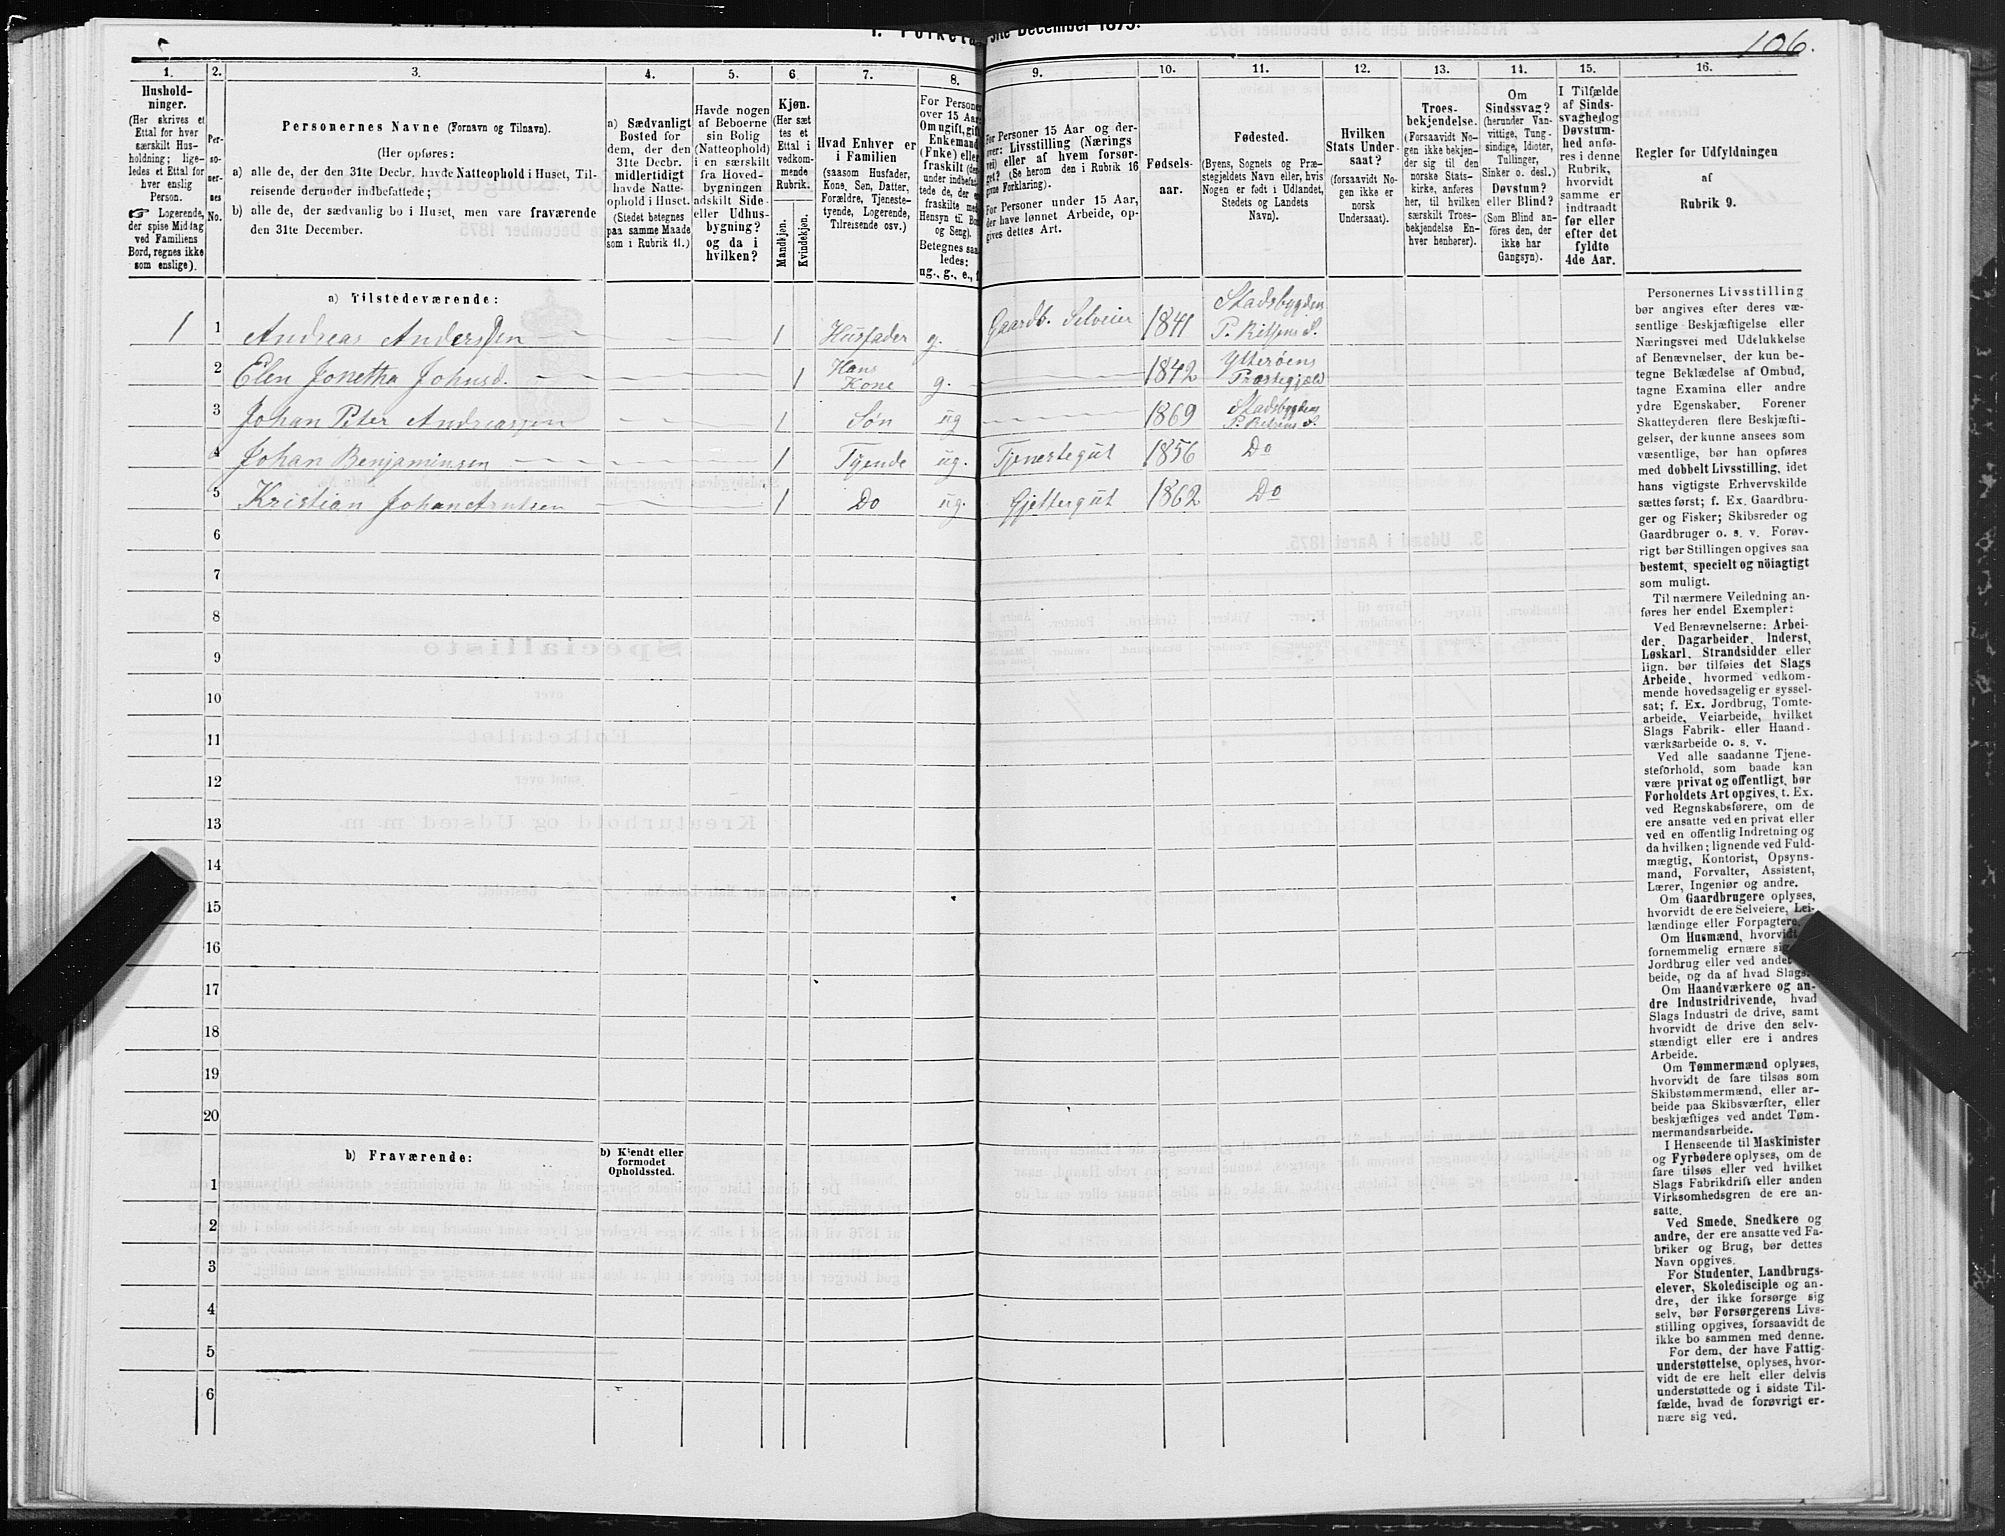 106.
1. 2. 3. 4. 5. 6 7. 8. 9. 10. 11. 12. 13. 14. 15. 16.
Hushold-
ninger.
(Her skrives et
Ettal for hver
særskilt Hus-
holdning; lige-
ledes et Ettal for
hver enslig
Person.
☞ Logerende,
der spise Middag
ved Familiens
Bord, regnes ikke
som enslige).
Per-
so-
ner-
nes
No.
Personernes Navne (Fornavn og Tilnavn).
(Her opføres:
a) alle de, der den 31te Decbr. havde Natteophold i Huset, Til-
reisende derunder indbefattede;
b) alle de, der sædvanlig bo i Huset, men vare fraværende
den 31te December.
a) Sædvanligt
Bosted for
dem, der den
31te Decbr.
midlertidigt
havde Natte-
ophold i Huset.
(Stedet betegnes
paa samme Maade
som i Rubrik 11.)
Havde nogen
af Beboerne
sin Bolig
(Natteophold)
i en særskilt
fra Hoved-
bygningen
adskilt Side-
eller Udhus-
bygning?
og da i
hvilken?
Kjøn.
(Her sæt
tes et
Ettal i
vedkom-
mende
Rubrik.
Mandkjøn.
Kvindekjøn.
Hvad Enhver er
i Familien
(saasom Husfader,
Kone, Søn, Datter,
Forældre, Tjeneste-
tyende, Logerende,
Tilreisende osv.)
For Personer
over 15 Aar:
Om ugift, gift,
Enkemand
(Enke) eller
fraskilt
Betegnes saa
ledes:
ug., g., e., f.
For Personer 15 Aar og der-
over: Livsstilling (Nærings
vei) eller af hvem forsør-
get? (Se herom den i Rubrik 16
givne Forklaring).
For Personer under 15 Aar,
der have lønnet Arbeide, op-
gives dettes Art.
Fødsels-
aar.
Fødested.
(Byens, Sognets og Præ-
stegjeldets Navn eller, hvis
Nogen er født i Udlandet,
Stedets og Landets
Navn).
Hvilken
Stats Under-
saat?
(forsaavidt No-
gen ikke er
norsk
Undersaat).
Troes-
bekjendelse.
(Forsaavidt No-
gen ikke bekjen-
der sig til den
norske Stats-
kirke, anføres
her, til hvilken
særskilt Troes-
bekjendelse En-
hver henhører).
Om
Sindssvag?
(herunder Van-
vittige, Tung-
sindige, Idioter,
Tullinger,
Sinker o. desl.)
Døvstum?
eller Blind?
(Som Blind an-
føres den, der
ikke har
Gangsyn).
I Tilfælde
af Sinds-
svaghed og
Døvstum-
hed anfø-
res i denne
Rubrik,
hvorvidt
samme er
indtraadt
før eller
efter det
fyldte
4de Aar.
Regler for Udfyldningen
af
Rubrik 9.
a) Tilstedeværende:
1 1 Andreas Andersen 1 Husfader g. Gaardb. Selveier 1841 Stadsbygden
P. Ritsens S.
2 Elen Jonetha Johnsd. 1 Hans
Kone g. 1842 Ytterøens
Præstegjæld
3 Johan Peter Andreassen 1 Søn ug 1869 Stadsbygdens
P. Ritsens S.
4 Johan Benjaminsen 1 Tyende ug. Tjenestegut 1856 Do
5 Kristian Johan Arntsen 1 Do ug. Gjettergut 1862 Do
6
7
8
9
10
11
12
13
14
15
16
17
18
19
20
b) Fraværende:
b) Kjendt eller
formodet
Opholdssted.
1
2
3
4
5
6
Personernes Livsstilling
bør angives efter deres væ-
sentlige Beskjæftigelse eller
Næringsvei med Udelukkelse
af Benævnelser, der kun be-
tegne Beklædelse af Ombud,
tagne Examina eller andre
ydre Egenskaber. Forener
Skatteyderen flere Beskjæfti-
gelser, der kunne ansees som
væsentlige, bør han opføres
med dobbelt Livsstilling, idet
hans vigtigste Erhvervskilde
sættes først; f. Ex. Gaardbru-
ger og Fisker; Skibsreder og
Gaardbruger o. s. v. Forøv-
rigt bør Stillingen opgives saa
bestemt, specielt og nöiagtigt
som muligt.
Til nærmere Veiledning an-
føres her endel Exempler:
Ved Benævnelserne: Arbei-
der, Dagarbeider, Inderst,
Løskarl, Strandsidder eller
lign. bør tilføies det Slags
Arbeide, hvormed vedkom-
mende hovedsagelig er syssel-
sat; f. Ex. Jordbrug, Tomte-
arbeide, Veiarbeide, hvilket
Slags Fabrik- eller Haand-
værksarbeide o. s. v.
Ved alle saadanne Tjene-
steforhold, som baade kan
være privat og offentligt, bør
Forholdets Art opgives, t. Ex.
ved Regnskabsførere, om de
ere ansatte ved en privat eller
ved en offentlig Indretning og
da hvilken; lignende ved Fuld-
mægtig, Kontorist, Opsyns-
mand, Forvalter, Assistent,
Lærer, Ingeniør og andre.
Om Gaardbrugere oplyses,
hvorvidt de ere Selveiere, Lei-
lændinge eller Forpagtere.
Om Husmænd, hvorvidt
fornemmelig ernære sig
Jordbrug eller ved andet
beide, og da af hvad Slags.
Om Haandværkere og an-
dre Industridrivende, hvad
Slags Industri de drive, samt
hvorvidt de drive den selv-
stændigt eller ere i andres
Arbeide.
Om Tømmermænd oplyses,
hvorvidt de fare tilsøs som
Skibstømmermænd, eller ar-
beide paa Skibsværfter, eller
beskjæftiges ved andet Tøm-
mermandsarbeide.
I Henseende til Maskinister
og Fyrbødere oplyses, om de
fare tilsøs eller ved hvilket
Slags Fabrikdrift eller anden
Virksomhedsgren de ere an-
satte.
Ved Smede, Snedkere og
andre, der ere ansatte ved Fa-
briker og Brug, bør dettes
Navn opgives.
For Studenter, Landbrugs-
elever, Skoledisciple og an-
dre, der ikke forsørge sig
selv, bør Forsørgerens Livs-
stilling opgives, forsaavidt de
ikke bo sammen med denne.
For dem, der have Fattig-
understøttelse, oplyses, hvor-
vidt de ere helt eller delvis
understøttede og i sidste Til-
fælde, hvad de forøvrigt er-
nære sig ved.